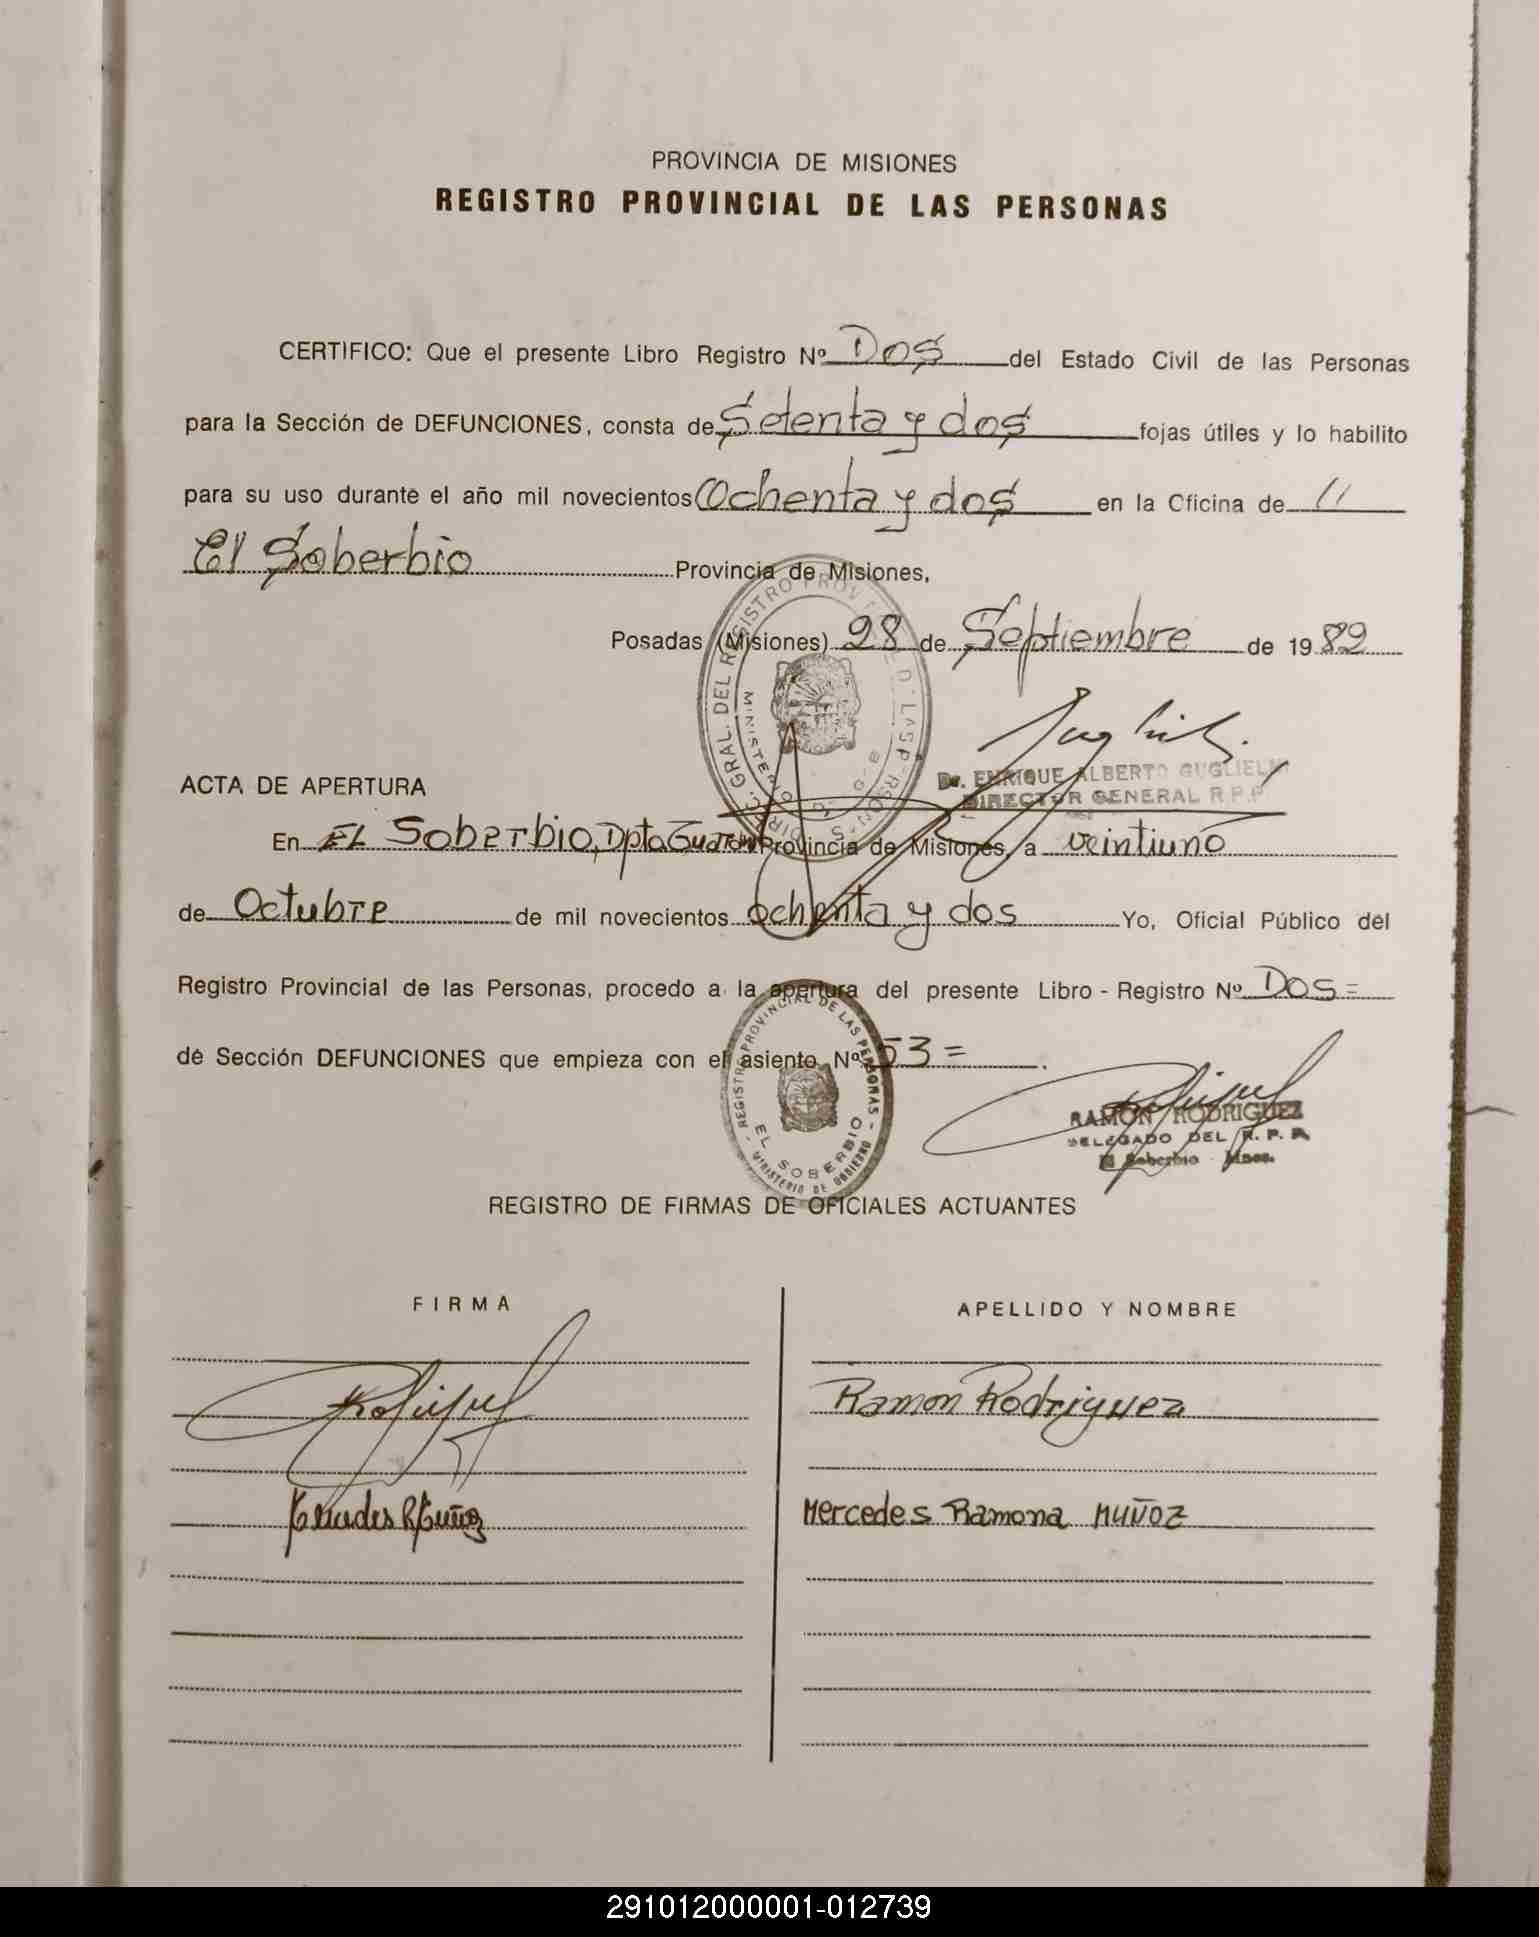 PROVINCIA DE MISIONES
REGISTRO PROVINCIAL DE LAS PERSONAS
CERTIFICO: Que el presente Libro Registro Nº Dos del Estado Civil de las Personas
para la Sección de DEFUNCIONES, consta de Setenta y dos fojas útiles y lo habilito
para su uso durante el año mil novecientos Ochenta y dos en la Oficina de 11
El Soberbio Provincia de Misiones,
Posadas (Misiones) 28 de Septiembre de 1982
DIREC. GRAL. DEL REGISTRO PROV
MINISTERIO
Dr. ENRIQUE ALBERTO GUGLIELMI
DIRECTOR GENERAL R.P.P
ACTA DE APERTURA
En EL Soberbio, Dpto Provincia de Misiones, a veintiuno
de Octubre de mil novecientos Ochenta y dos Yo, Oficial Público del
Registro Provincial de las Personas, procedo a la apertura del presente Libro - Registro Nº Dos =
de Sección DEFUNCIONES que empieza con el asiento Nº 53 = .
REGISTRO PROVINCIAL DE LAS PERSONAS
EL SOBERBIO
MINISTERIO DE GOBIERNO
RAMON RODRIGUEZ
DELEGADO DEL R. P. P.
El Soberbio Mnes.
REGISTRO DE FIRMAS DE OFICIALES ACTUANTES
FIRMA
APELLIDO Y NOMBRE
Ramon Rodriguez
Mercedes Ramona MUÑOZ
291012000001-012739